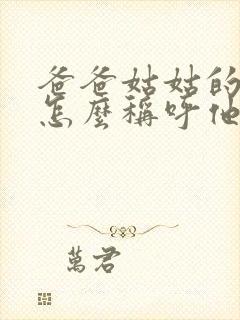 爸爸姑姑的
怎麼稱呼他
萬君